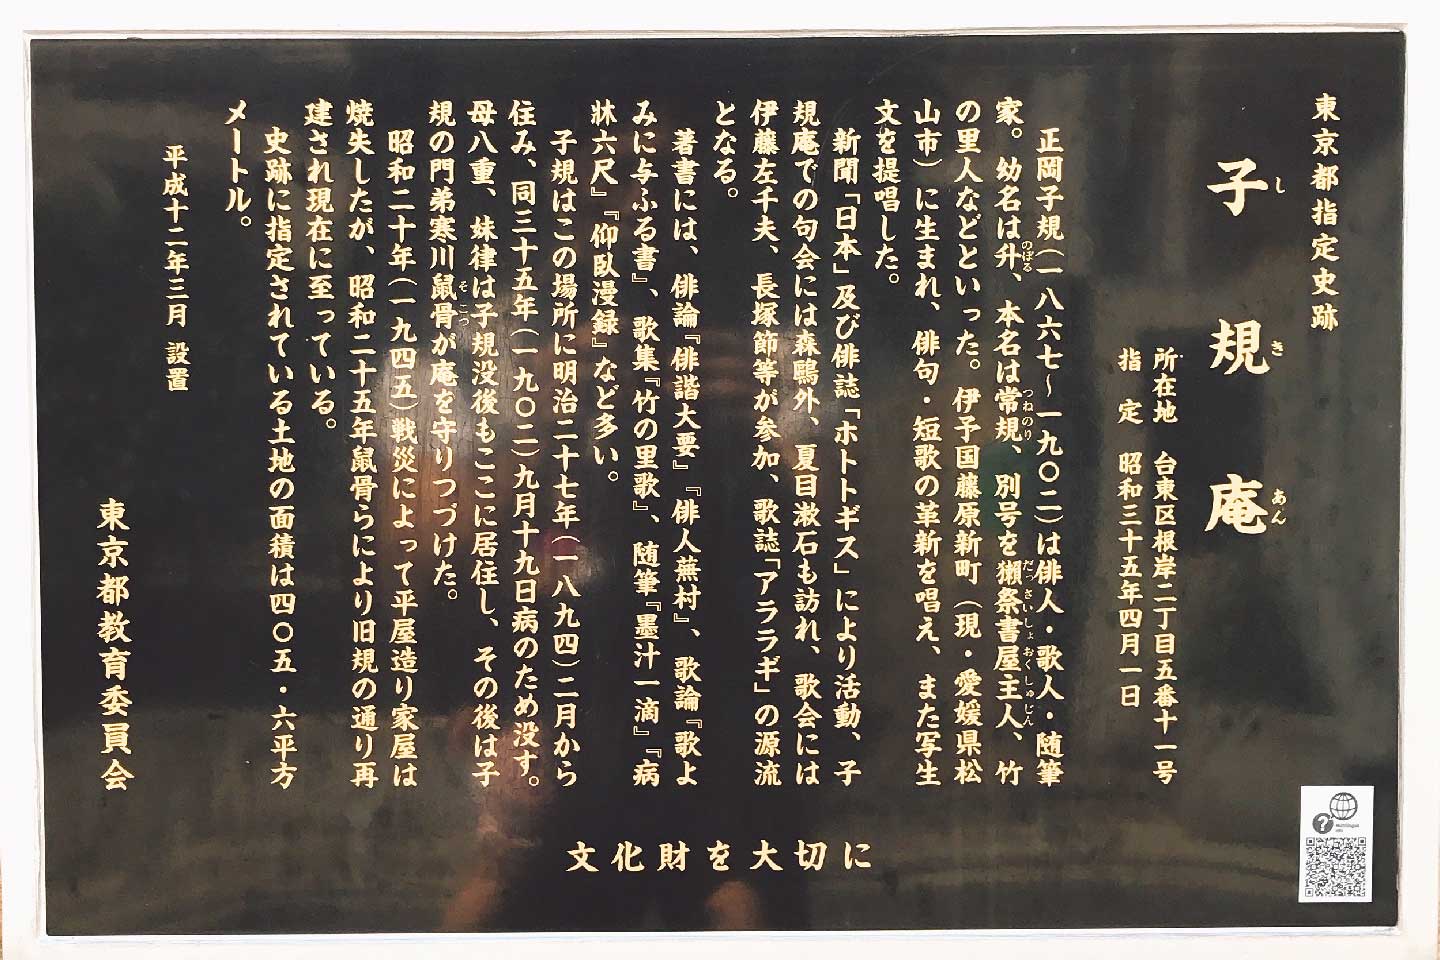 東京都指定史跡
子規庵
し き あん
所在地 台東区根岸二丁目五番十一号
指 定 昭和三十五年四月一日
正岡子規(一八六七〜一九〇二)は俳人・歌人・随筆
家。幼名は升、本名は常規、別号を獺祭書屋主人、竹
のぼる つねのり だっさいしょおくしゅじん
の里人などといった。伊予国藤原新町(現・愛媛県松
山市)に生まれ、俳句・短歌の革新を唱え、また写生
文を提唱した。
新聞「日本」及び俳誌「ホトトギス」により活動、子
規庵での句会には森鷗外、夏目漱石も訪れ、歌会には
伊藤左千夫、長塚節等が参加、歌誌「アララギ」の源流
となる。
著書には、俳論『俳諧大要』『俳人蕪村』、歌論『歌よ
みに与ふる書』、歌集『竹の里歌』、随筆『墨汁一滴』『病
牀六尺』『仰臥漫録』など多い。
子規はこの場所に明治二十七年(一八九四)二月から
住み、同三十五年(一九〇二)九月十九日病のため没す。
母八重、妹律は子規没後もここに居住し、その後は子
規の門弟寒川鼠骨が庵を守りつづけた。
そこつ
昭和二十年(一九四五)戦災によって平屋造り家屋は
焼失したが、昭和二十五年鼠骨らにより旧規の通り再
建され現在に至っている。
史跡に指定されている土地の面積は四〇五・六平方
メートル。
平成十二年三月 設置
東京都教育委員会
文化財を大切に
Multilingual
info